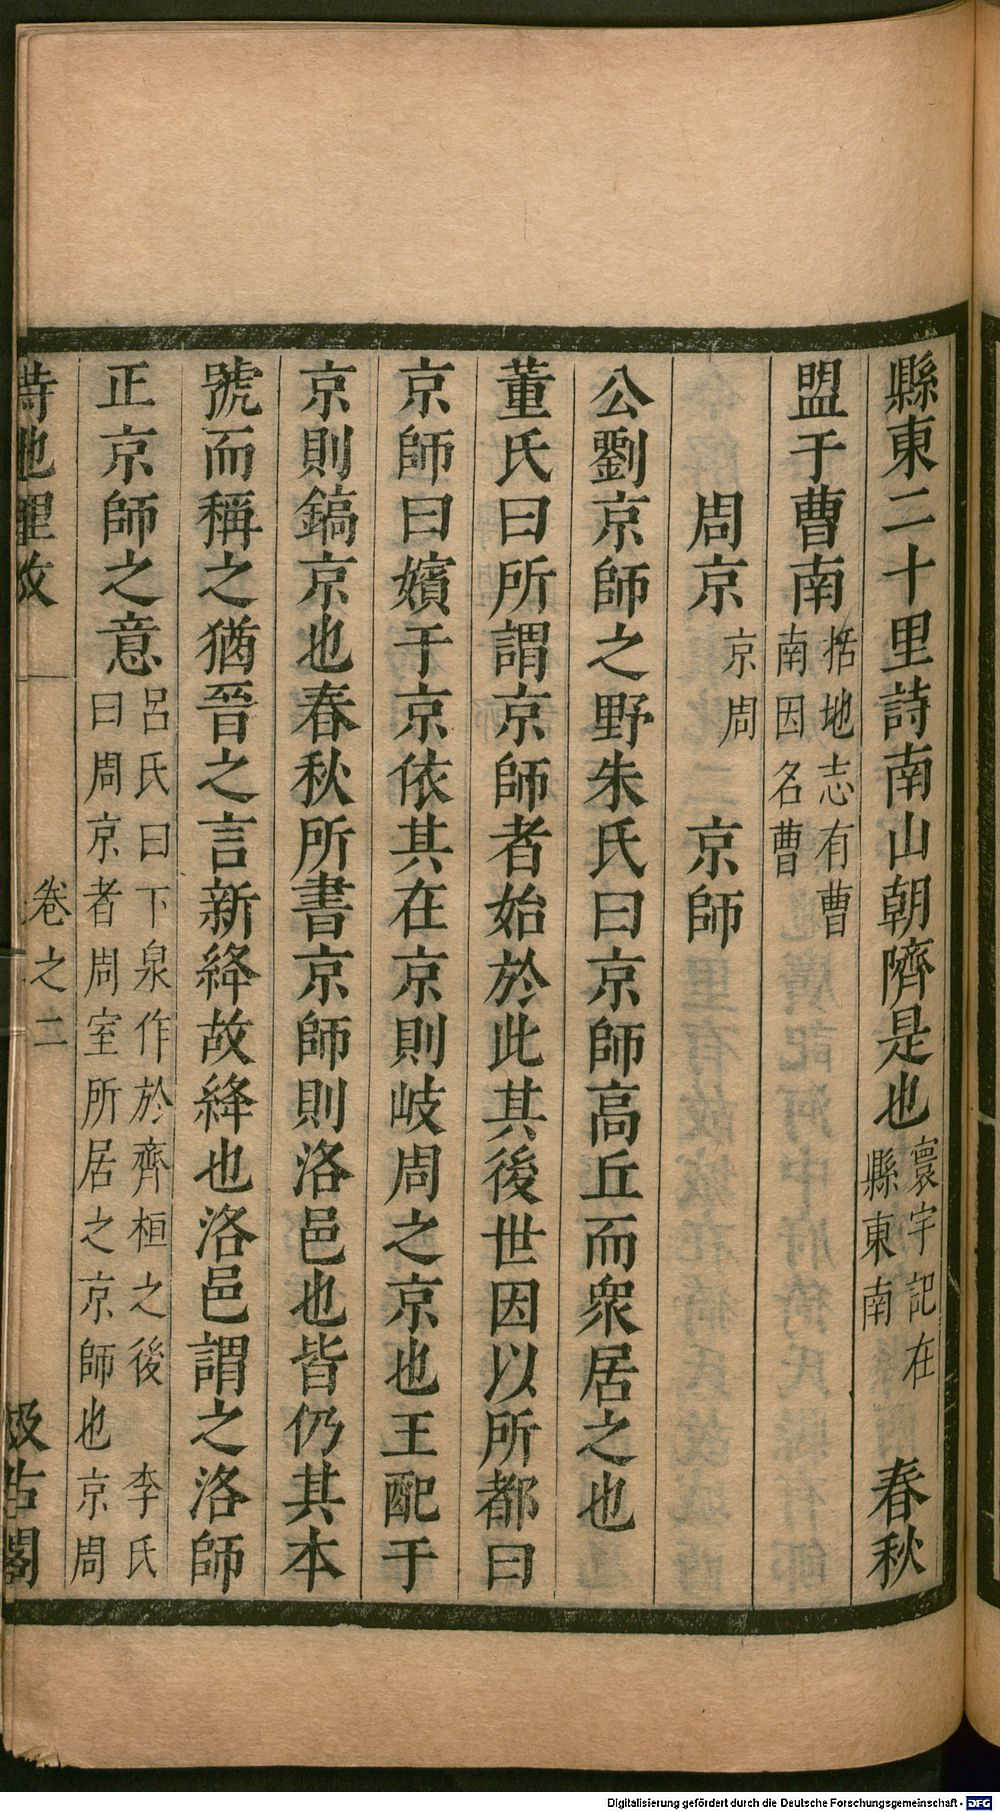 縣東二十里詩南山朝隮是也寰宇記在縣東南 春秋
盟于曹南括地志有曹南因名曹
周京京周 京師
公劉京師之野朱氏曰京師高丘而衆居之也
董氏曰所謂京師者始於此其後世因以所都曰
京師曰嬪于京依其在京則岐周之京也王配于
京則鎬京也春秋所書京師則洛邑也皆仍其本
號而稱之猶晉之言新絳故絳也洛邑謂之洛師
正京師之意呂氏曰下泉作於齊桓之後 李氏曰周京者周室所居之京師也京周
詩地理攷 卷之二 汲古閣
Digitalisierung gefördert durch die Deutsche Forschungsgemeinschaft - DFG